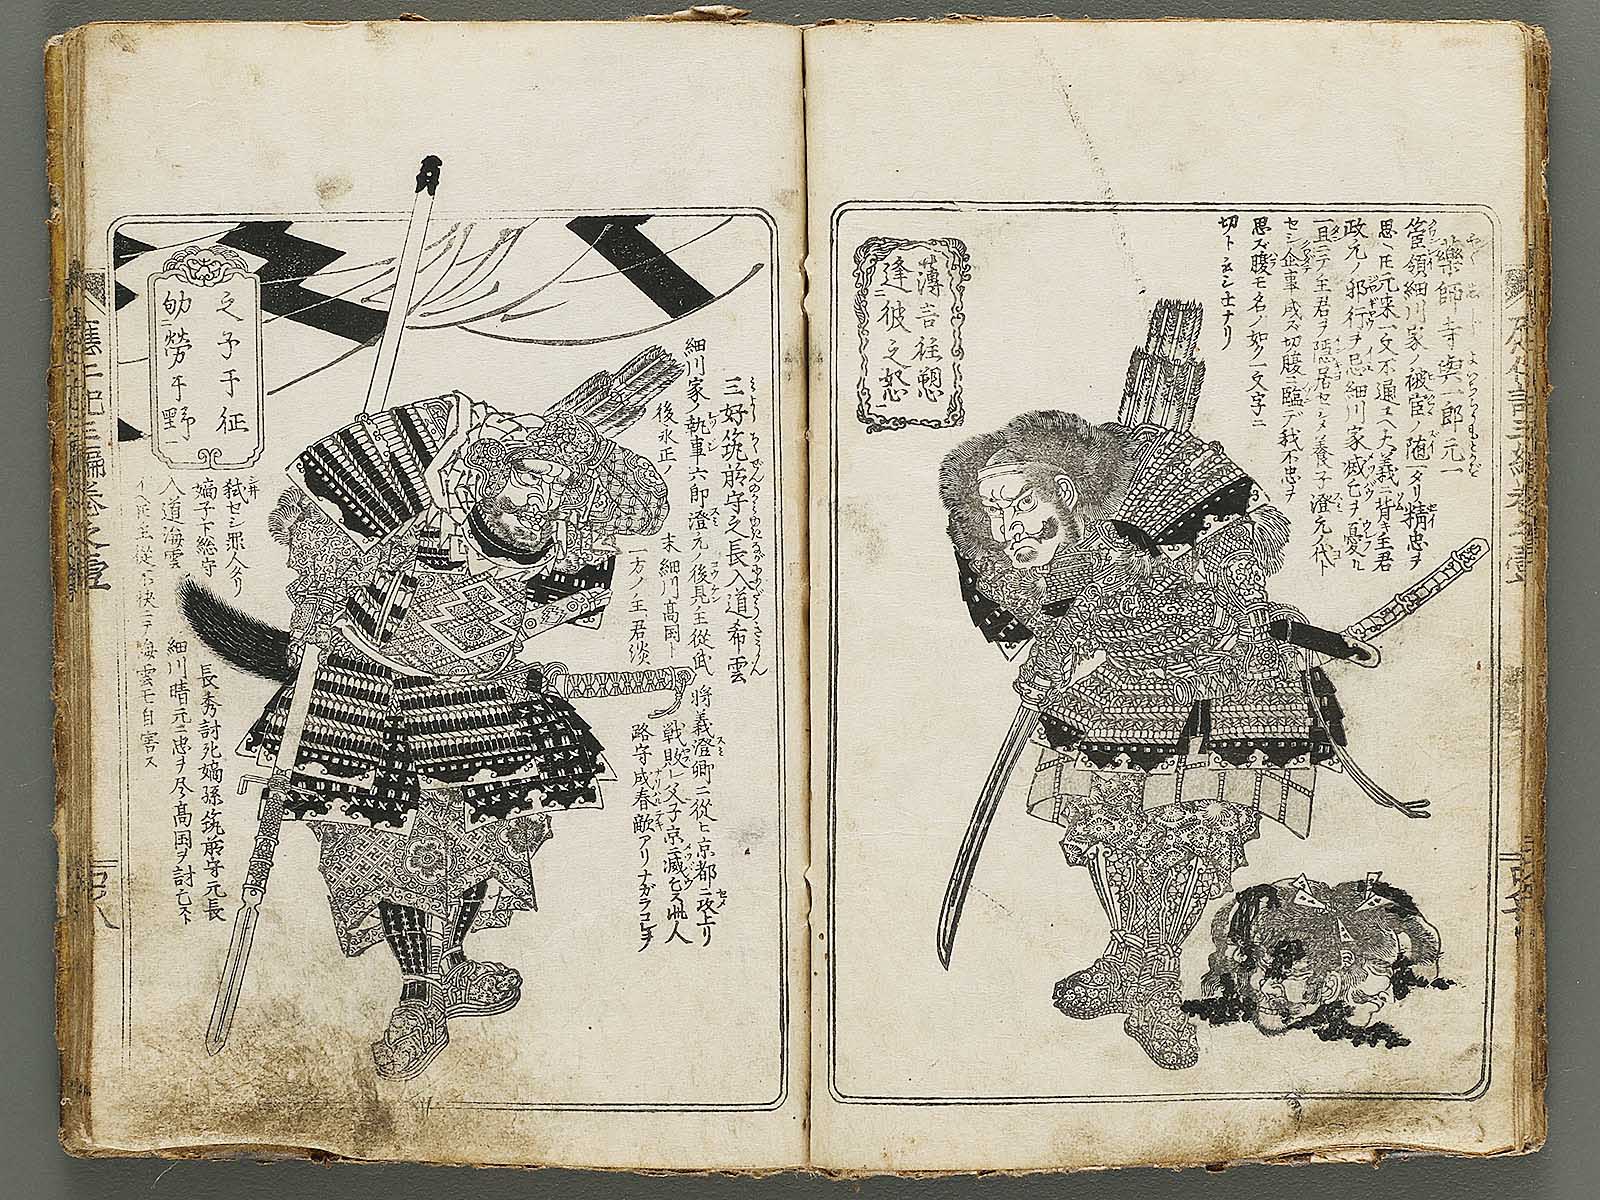 藥師寺與一郎元一
管領細川家ノ被官ノ随一タリ精忠ヲ
思ヘ𪜈元来一文不通ユヘ大義ニ背キ主君
政元ノ邪行ヲ忌細川家滅亡ヲ憂ル
一旦ニテ主君ヲ隠居セシメ養子澄元ノ代ト
セシ企事成ズ切腹ニ臨デ我不忠ヲ
思ズ腹モ名ノ如ク一文字ニ
切ト云シ士ナリ
薄言往愬
逢彼之怒
三好筑前守之長入道希雲
細川家ノ執事六郎澄元ノ後見主從武将義澄卿ニ従ヒ京都ニ攻上リ
後永正ノ末細川高国ト戦敗レ父子京ニ滅亡ス此人
一方ノ主君淡路守成春敵アリナガラコレヲ
弑セシ罪人ナリ
嫡子下総守長秀討死嫡孫筑前守元長
入道海雲細川晴元ニ忠ヲ尽高国ヲ討亡スト
海雲モ自害ス
之子于征
劬勞于野